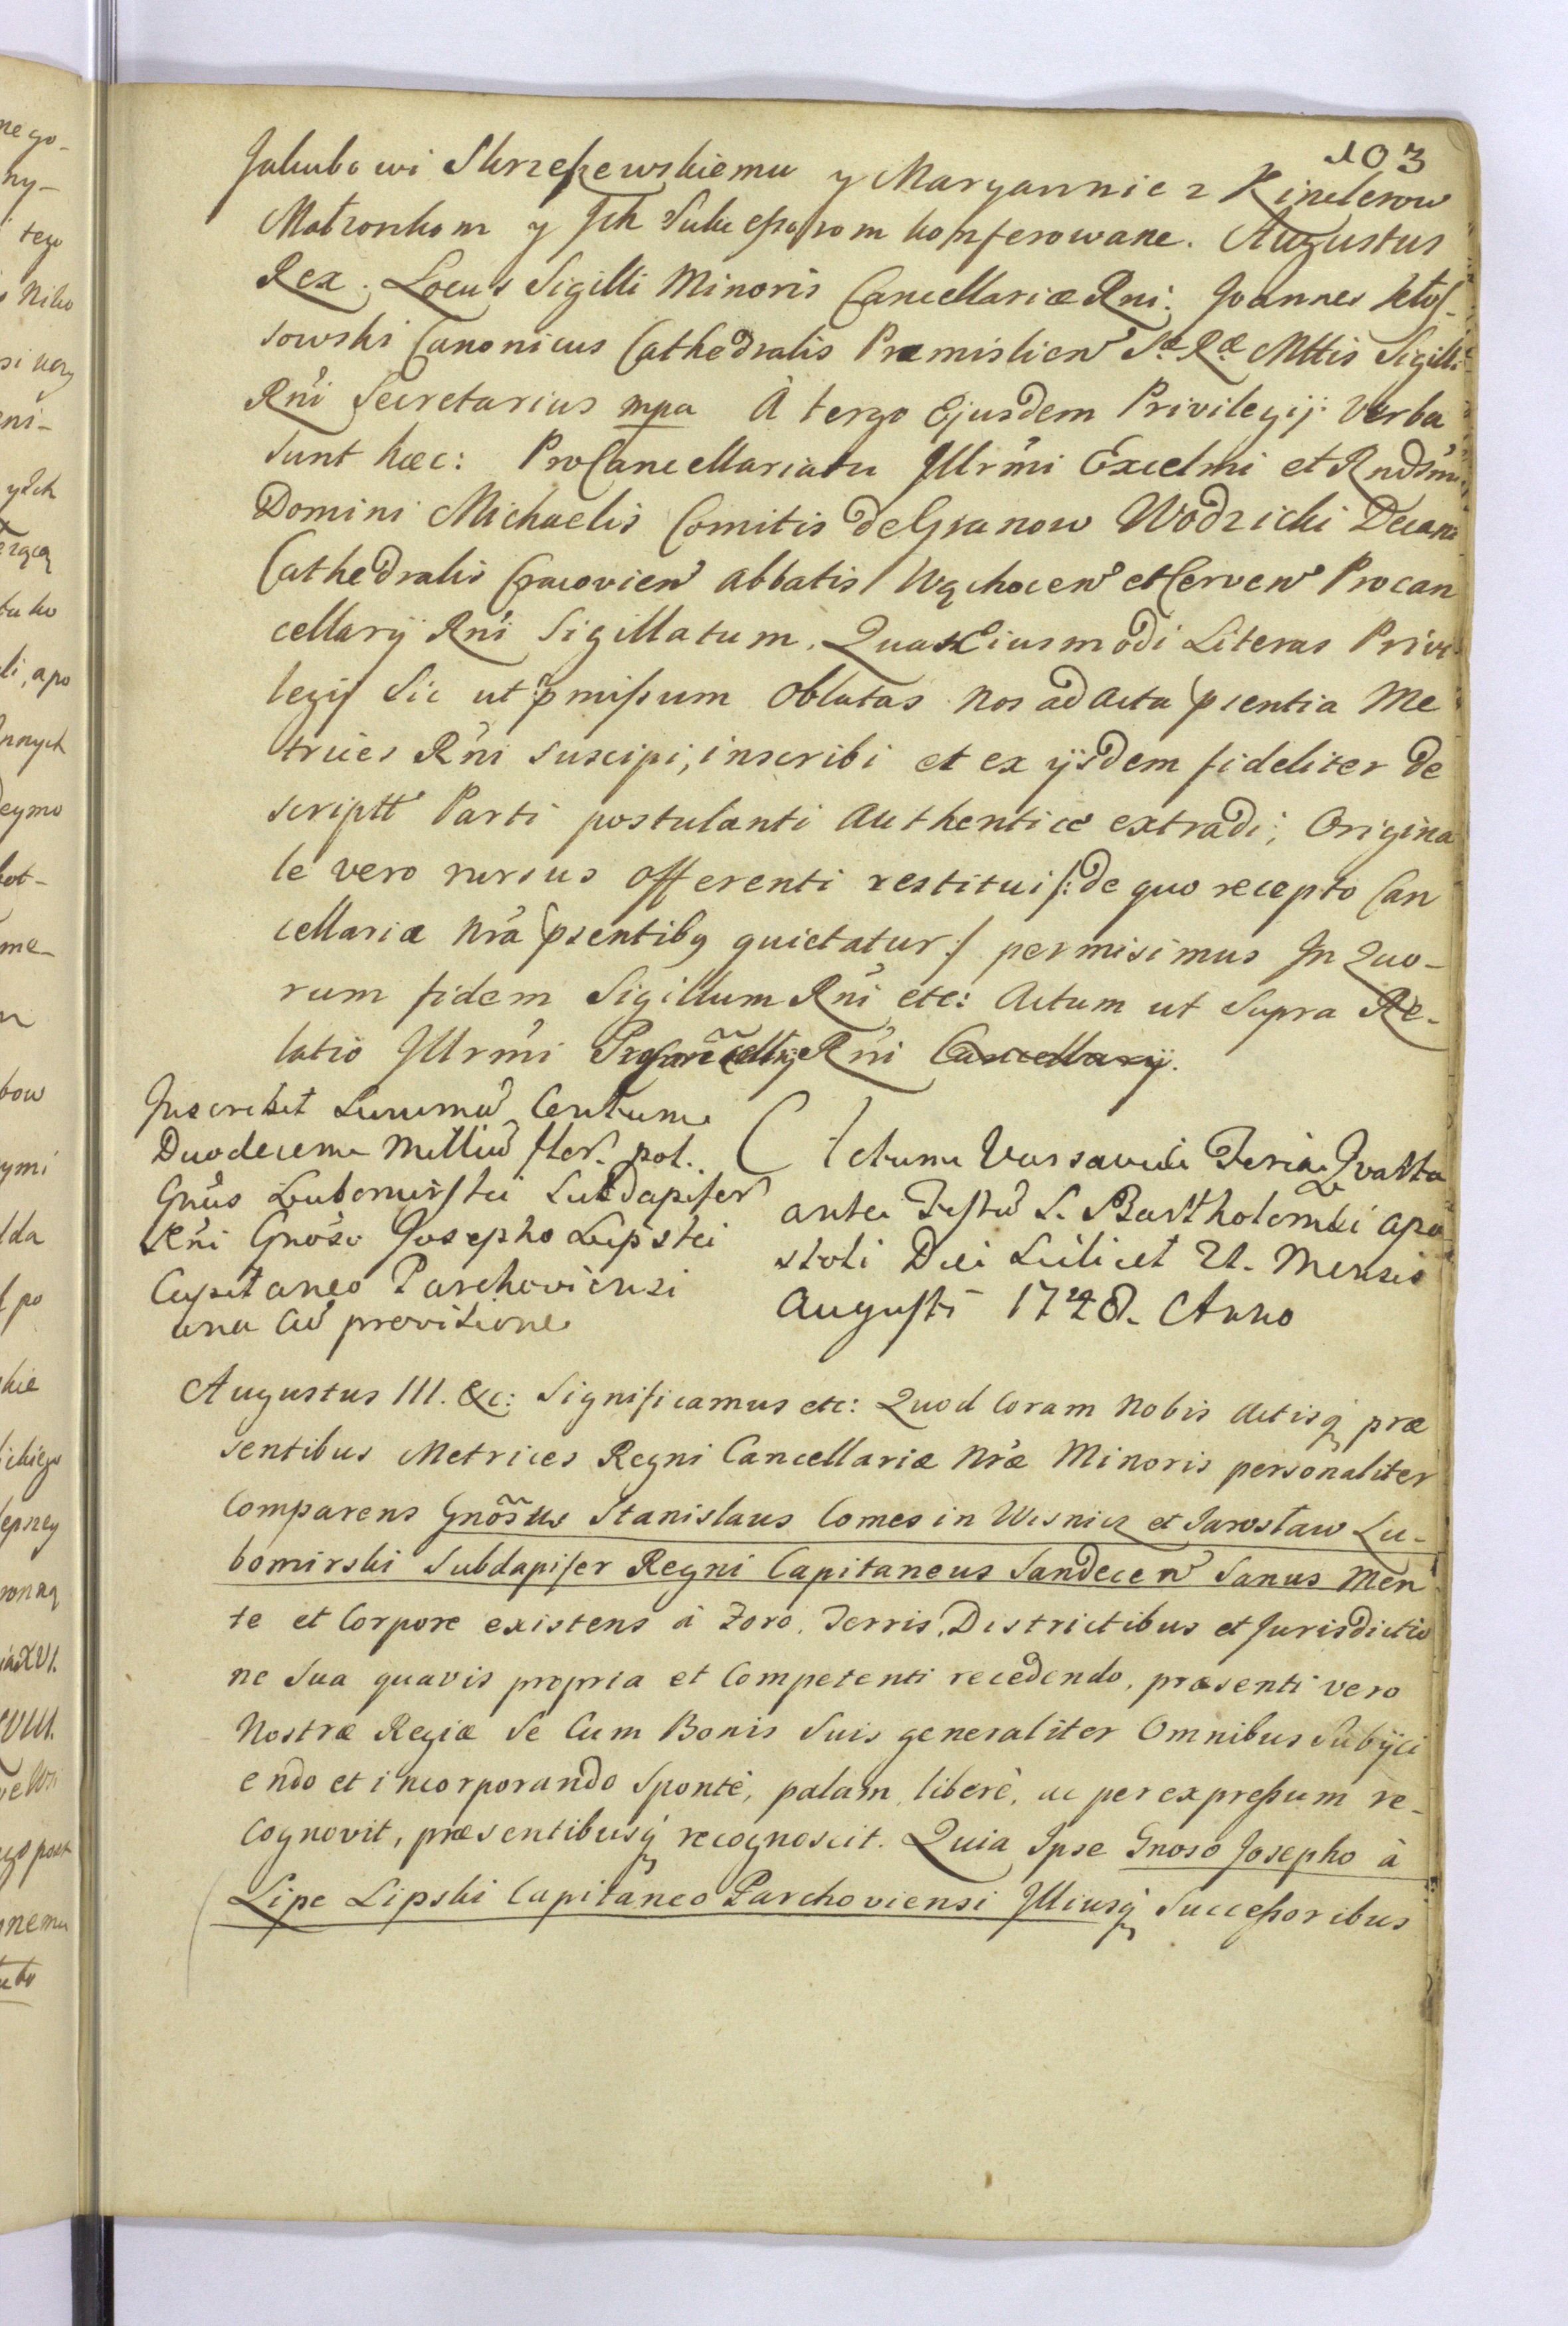 103
Jakubowi Skrzeszewskiemu y Maryannie z Kinderow
Małzonkom y Jch Sukcessorom konferowane. Augustus
Rex. Locus Sigilli Minoris Cancellariæ Rni. Joannes Kłos-
sowski Canonicus Cathedralis Præmislien Sæ Ræ Mttis Sigilli
Rni Secretarius mpa A tergo Ejusdem Privilegij verba
sunt hæc: ProCancellariatu Jllrmi Excelmi et Rndsmi
Domini Michaelis Comitis de Granow Wodzicki Decani
Cathedralis Cracovien Abbatis Wąchocen et Cerven Procan
cellarij Rni Sigillatum. Quas Eiusmodi Literas Privi
legij Sic ut pmissum Oblatas Nos ad Acta psentia Me
trices Rni suscipi, inscribi et ex ijsdem fideliter de
scriptt Parti postulanti Authentice extradi; Origina
le vero rursus Offerenti restitui /: de quo recepto Can
cellaria Nra psentibq quietatur :/ permisimus Jn Quo-
rum fidem Sigillum Rni etc: Actum ut Supra Re-
latio Jllrmi Procancellrij Rni Cancellarij.
Jnscribit Summa Centum
Duodecem Milliu flor. pol.
Gnus Lubomirski Subdapifer
Rni Gnoso Josepho Lipski
Capitaneo Parchoviensi
una cu provisione
Actum Varsaviæ Feria Qvarta
ante Festu S. Bartholomæi Apo
stoli Diei Scilicet 21. Mensis
Augusti 1748. Anno
Augustus III. &c: Significamus etc: Quod Coram Nobis Actisq præ
sentibus Metrices Regni Cancellariæ Nræ Minoris personaliter
Comparens Gnosus Stanislaus Comes in Wisnicz et Jarosław Lu-
bomirski Subdapifer Regni Capitaneus Sandecen Sanus Men
te et Corpore existens à Foro, Terris, Districtibus et Jurisdictio
ne Sua quavis propria et Competenti recedendo, præsenti vero
Nostræ Regiæ Se Cum Bonis Suis generaliter Omnibus Subijci
endo et incorporando Spontè, palam, liberè, ac per expressum re-
cognovit, præsentibusq recognoscit. Quia Jpse Gnoso Josepho à
Lipe Lipski Capitaneo Parchoviensi Jlliusq Successoribus